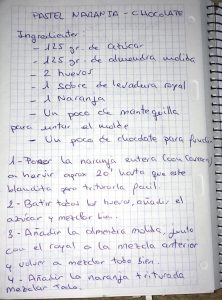 PASTEL NARANJA - CHOCOLATE
Ingredientes:
- 125 gr. de azúcar
- 125 gr. de almendra molida
- 2 huevos
- 1 sobre de levadura royal
- 1 Naranja
- Un poco de mantequilla
para untar el molde
- Un poco de chocolate para fundir
1 - Poner la naranja entera (con cáscara)
a hervir aprox 20' hasta que este
blandita pero triturarla facil.
2 - Batir todos los huevos, añadir el
azúcar y mezclar bien.
3 - Añadir la almendra molida, junto
con el royal a la mezcla anterior
y volver a mezclar todo bien.
4 - Añadir la naranja triturada
mezclar todo.